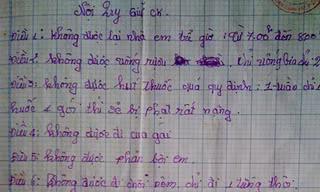 Nội Quy Gửi ck.
Điều 1: không được lại nhà em trễ giờ: Từ 7.00h đến 8.00
Điều 2: không được uống rượu chỉ uống bia
Điều 3: không được hút thuốc quá quy định: 1 tuần chỉ
thuốc 2 gói thì sẽ bị phạt rất nặng.
Điều 4: không được đi cua gái
Điều 5: không được phản bội em.
Điều 6: không được đi chơi đêm. chỉ đi 1 tiếng thôi.